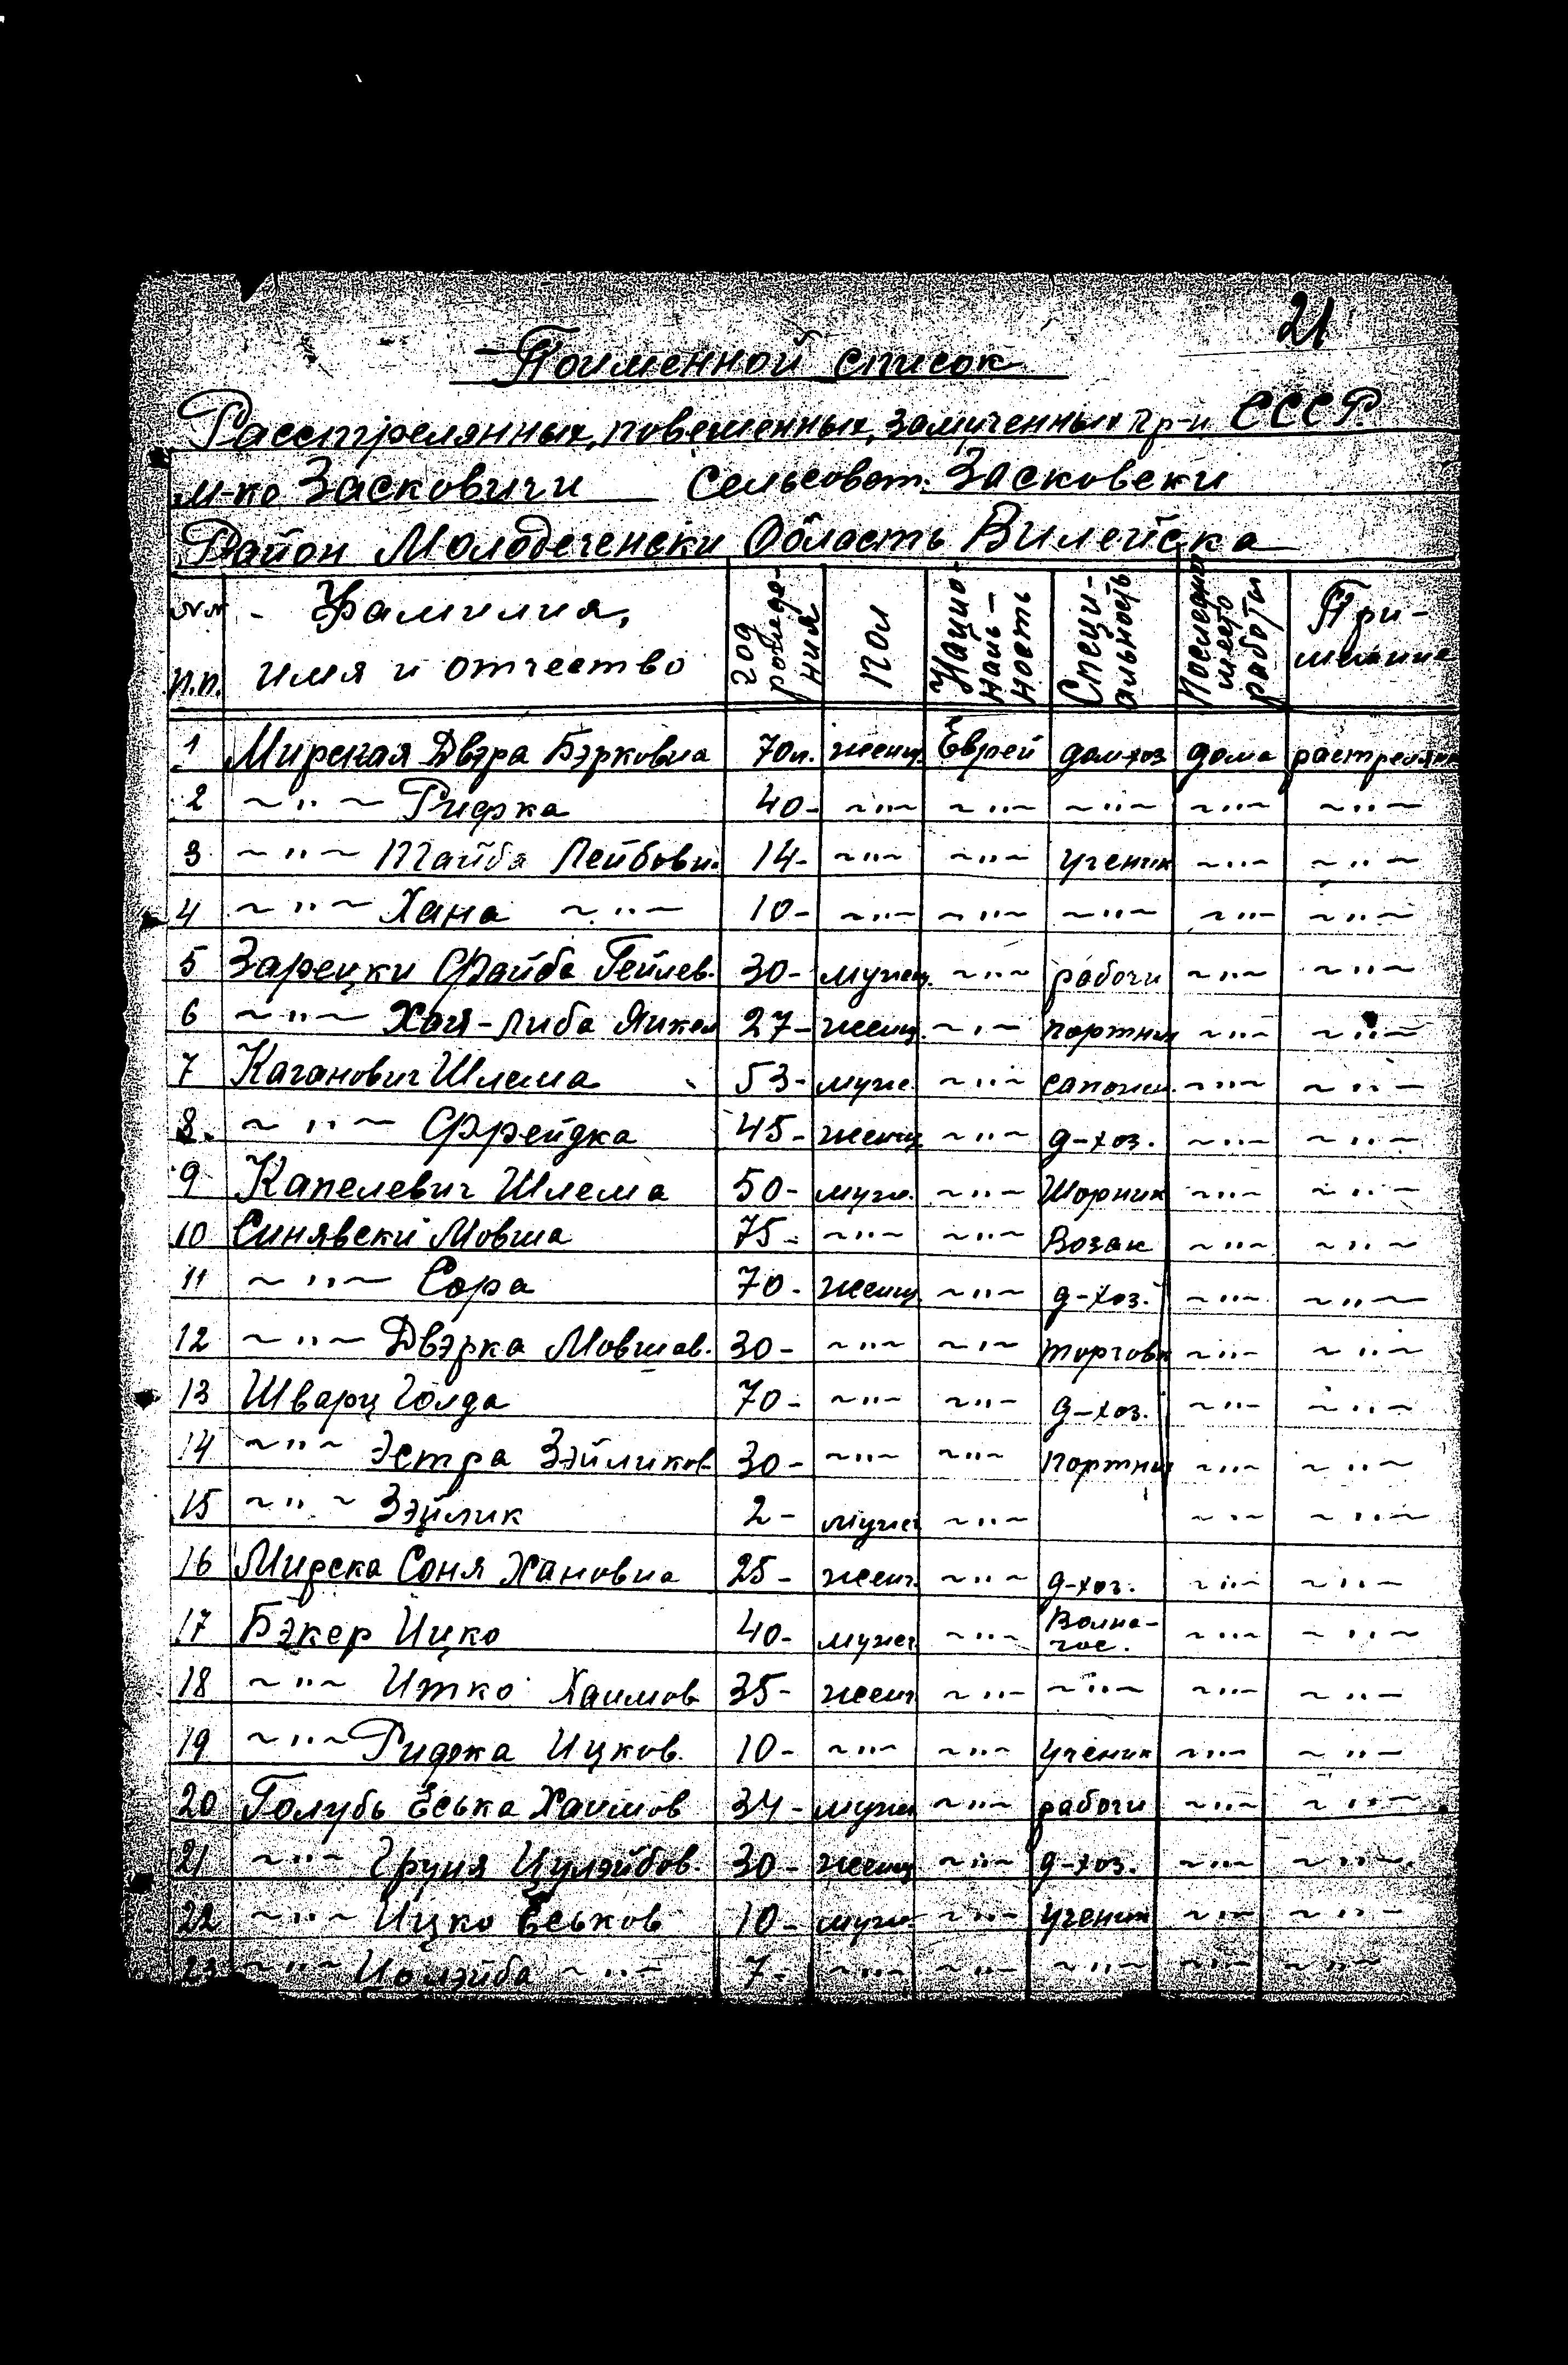 21
Поименной список
Расстрелянных, повешенных, замученных гр-н СССР.
м-ко Засковичи Сельсовет. Засковски
Район Молодеченски Область Вилейска
№№ п.п. Фамилия, имя и отчество год рождения Пол Нацио-наль-ность Специ-альность Последнее место работы При-мечание
1 Мирская Двэра Бэрковна 70л. женщ. Еврей дом-хоз дома растрелян
2 ~"~ Рифка 40- ~"~ ~"~ ~"~ ~"~ ~"~
3 ~"~ Тайба Лейбовн. 14- ~"~ ~"~ ученик ~"~ ~"~
4 ~"~ Хана ~"~ 10- ~"~ ~"~ ~"~ ~"~ ~"~
5 Зарецки Файба 30- мужщ. ~"~ рабочи ~"~ ~"~
6 ~"~ Хая-Либа Янкел 27- женщ. ~"~ портних ~"~ ~"~
7 Каганович Шлема 53- муже. ~"~ сапожн. ~"~ ~"~
8. ~"~ Ффрейдка 45- женщ ~"~ д-хоз. ~"~ ~"~
9 Капелевич Шлема 50- мужч. ~"~ Шорник ~"~ ~"~
10 Синявски Мовша 75- ~"~ ~"~ Возак ~"~ ~"~
11 ~"~ Сора 70- женщ. ~"~ д-хоз. ~"~ ~"~
12 ~"~ Двэрка Мовшов. 30- ~"~ ~"~ торговк ~"~ ~"~
13 Шварц Голда 70- ~"~ ~"~ д-хоз. ~"~ ~"~
14 ~"~ Эстра Зэйликов 30- ~"~ ~"~ портних ~"~ ~"~
15 ~"~ Зэйлик 2- мужч ~"~ ~"~ ~"~
16 Мирска Соня Хановна 25- женщ. ~"~ д-хоз. ~"~ ~"~
17 Бэкер Ицко 40- мужч ~"~ ~"~ ~"~
18 ~"~ Итко Хаимов 35- женщ ~"~ ~"~ ~"~ ~"~
19 ~"~ Рифка Ицков. 10- ~"~ ~"~ ученик ~"~ ~"~
20 Голубь Еська Хаимов 34- мужч ~"~ рабочи ~"~ ~"~
21 ~"~ Груня 30- женщ ~"~ д-хоз. ~"~ ~"~
22 ~"~ Ицко Еськов 10- мужч ~"~ ученик ~"~ ~"~
23 ~"~ ~"~ 7- ~"~ ~"~ ~"~ ~"~ ~"~